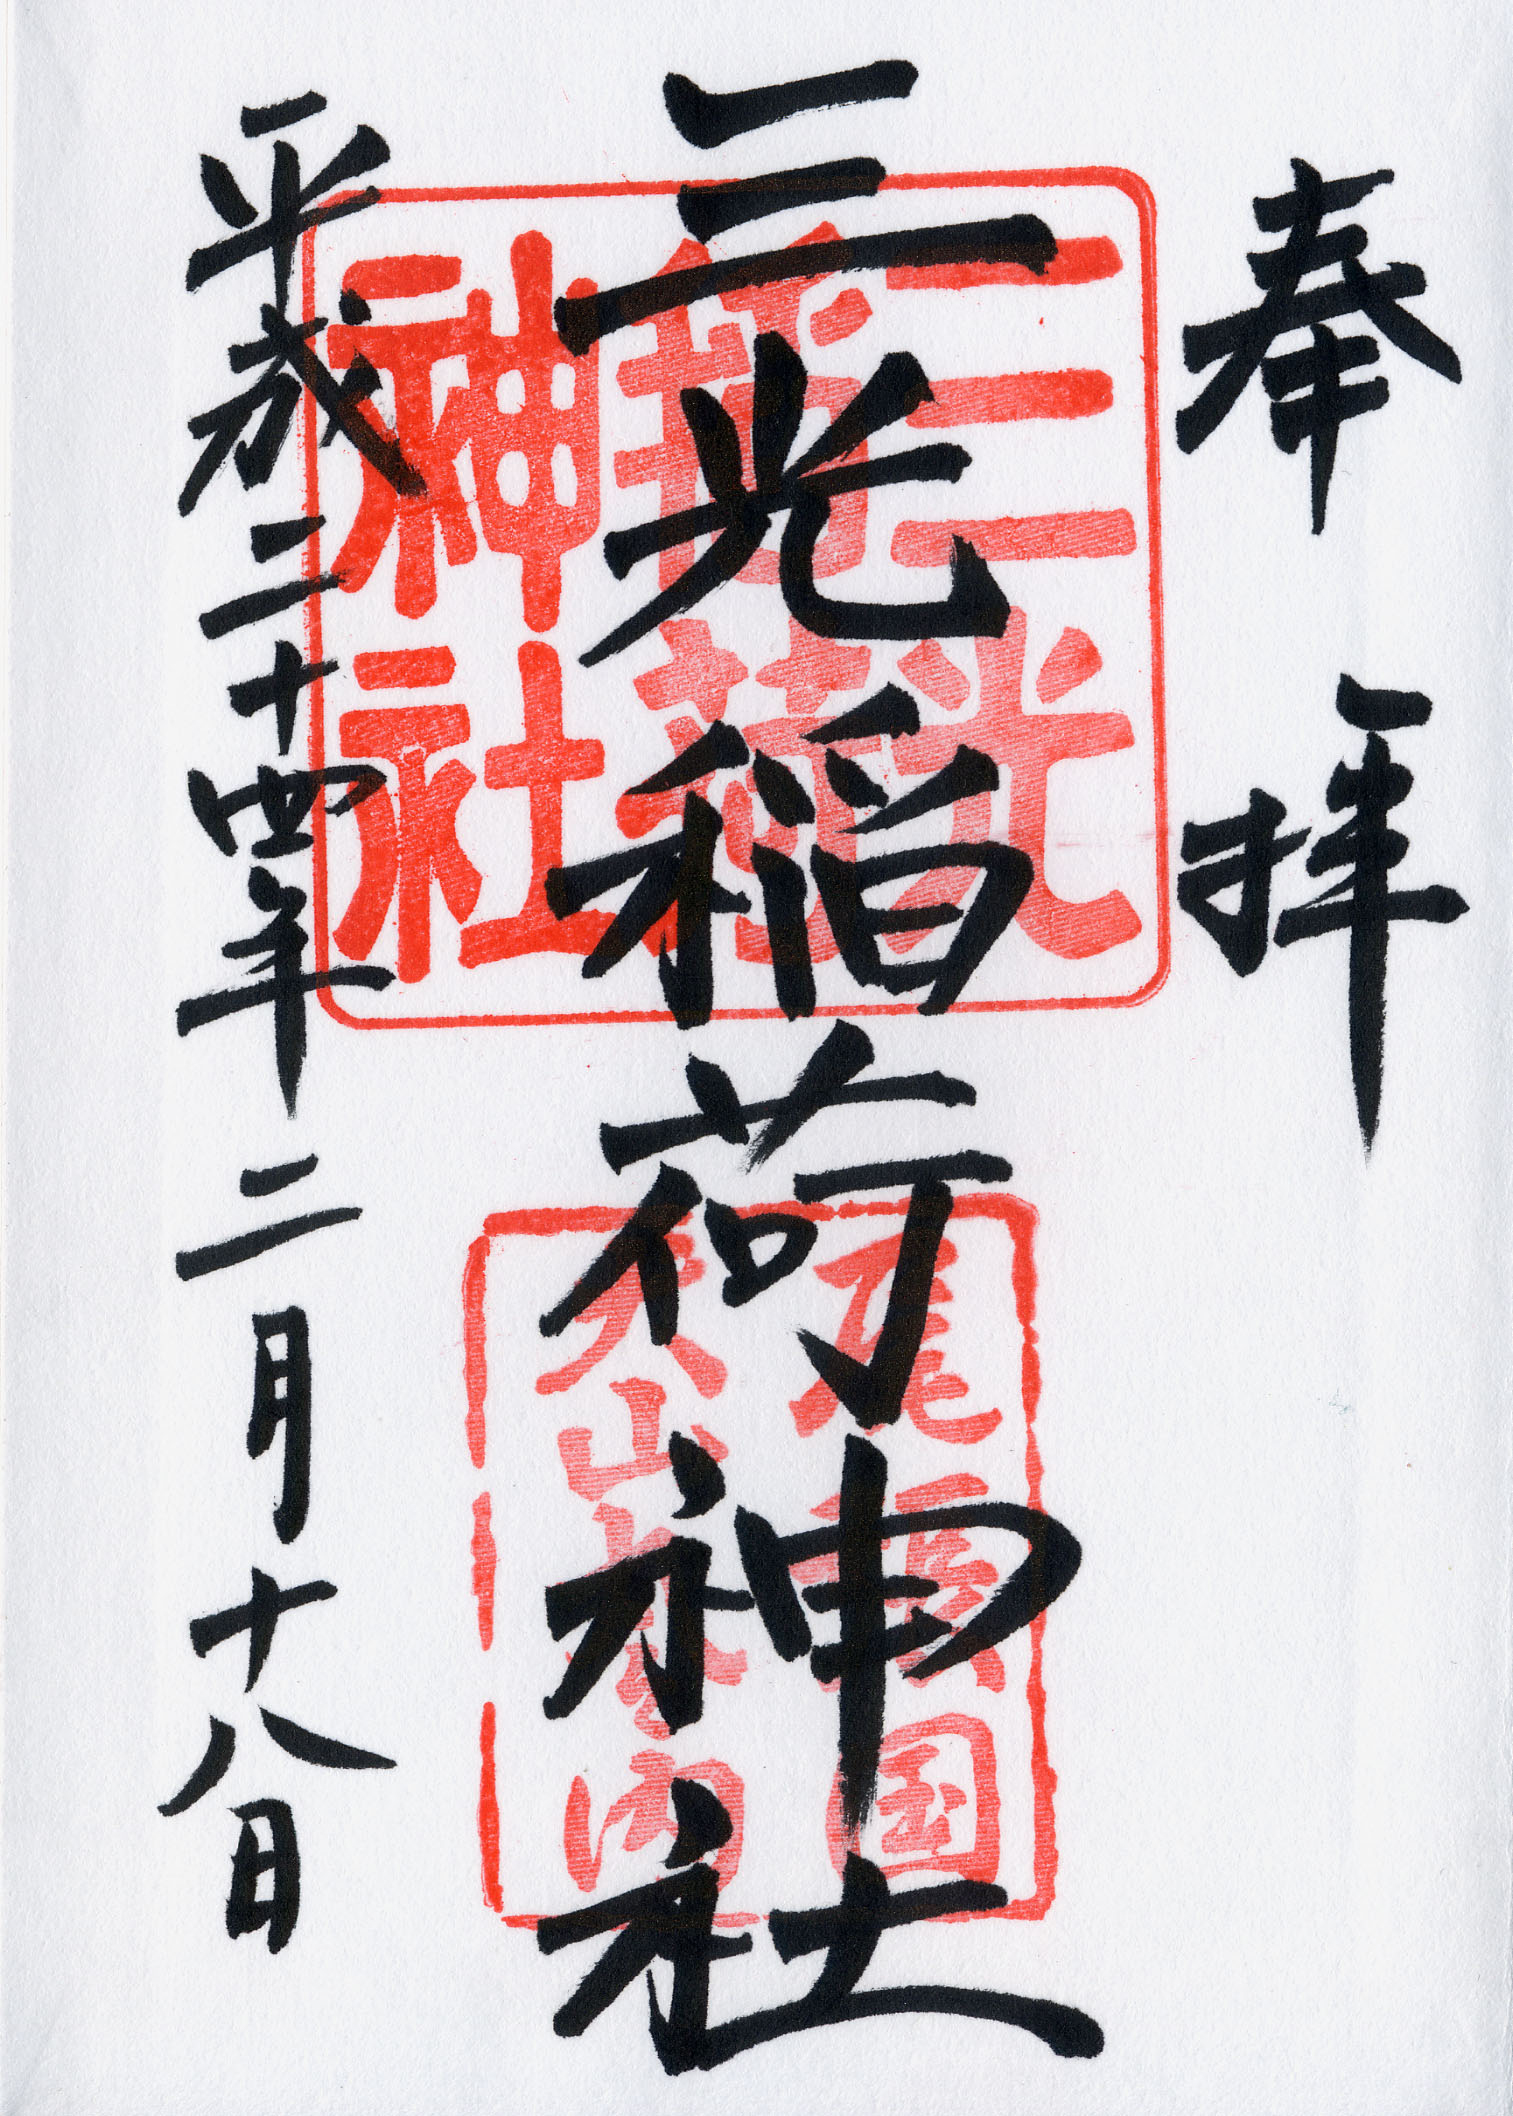 奉拝
三光稲荷神社
平成二十四年二月十八日
三光
稲荷
神社
尾張国
犬山城内